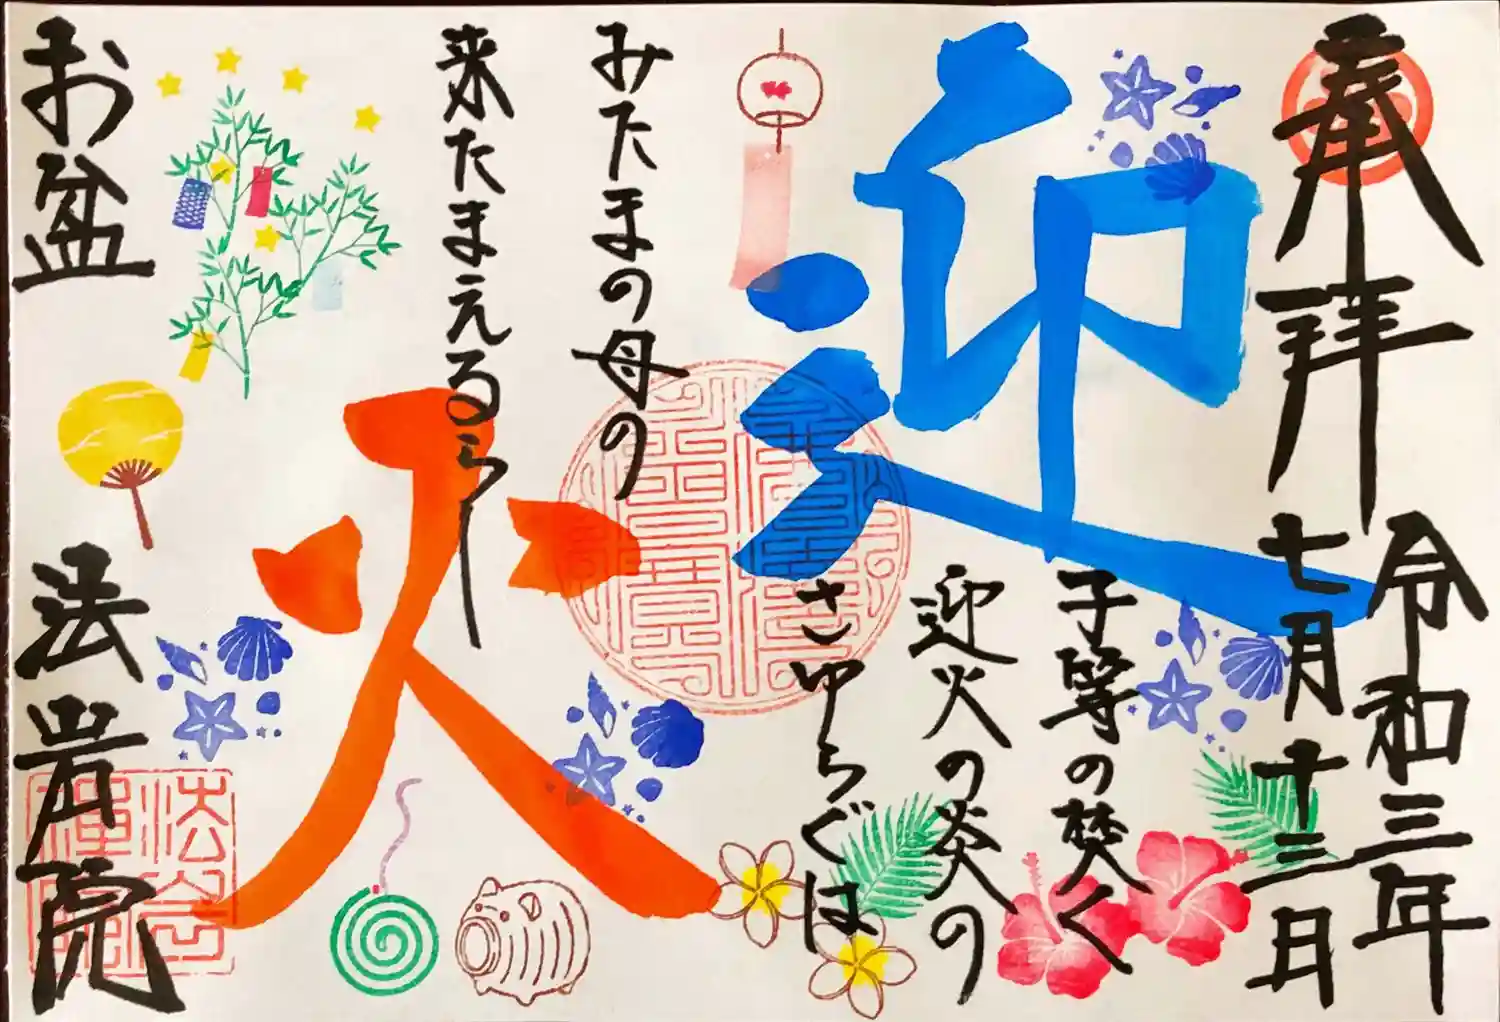 奉拝
令和三年
七月十三日
迎
火
子等の焚く
迎火の炎の
さゆらぐは
みたまの母の
来たまえるらし
お盆
法岩院